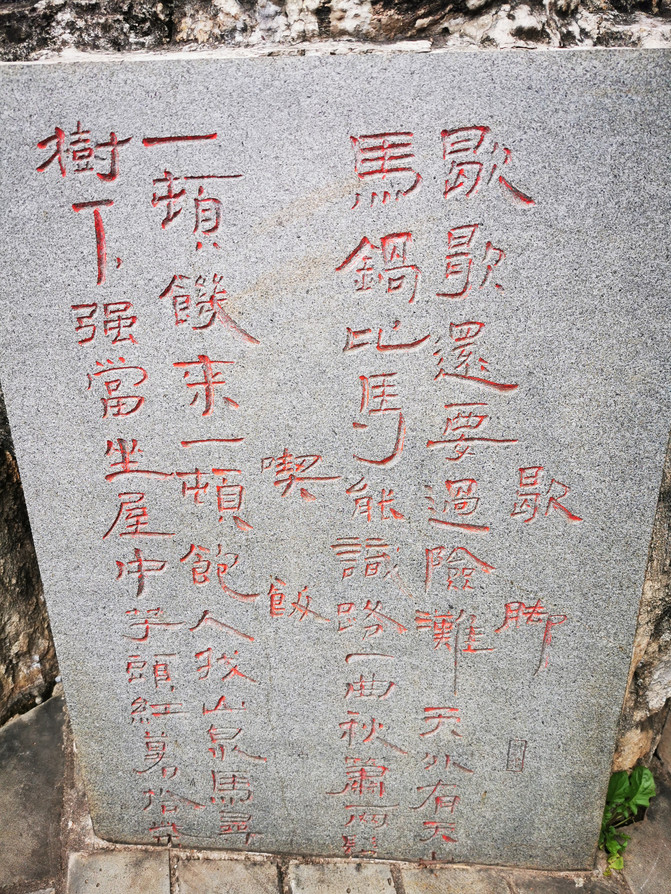 歇脚
歇歇還要過險灘天外有天
馬鍋比馬能識路一曲秋蕭兩鬢
喫飯
一頓饑來一頓飽人找山泉馬尋
樹下，强當坐屋中芋頭紅薯拾